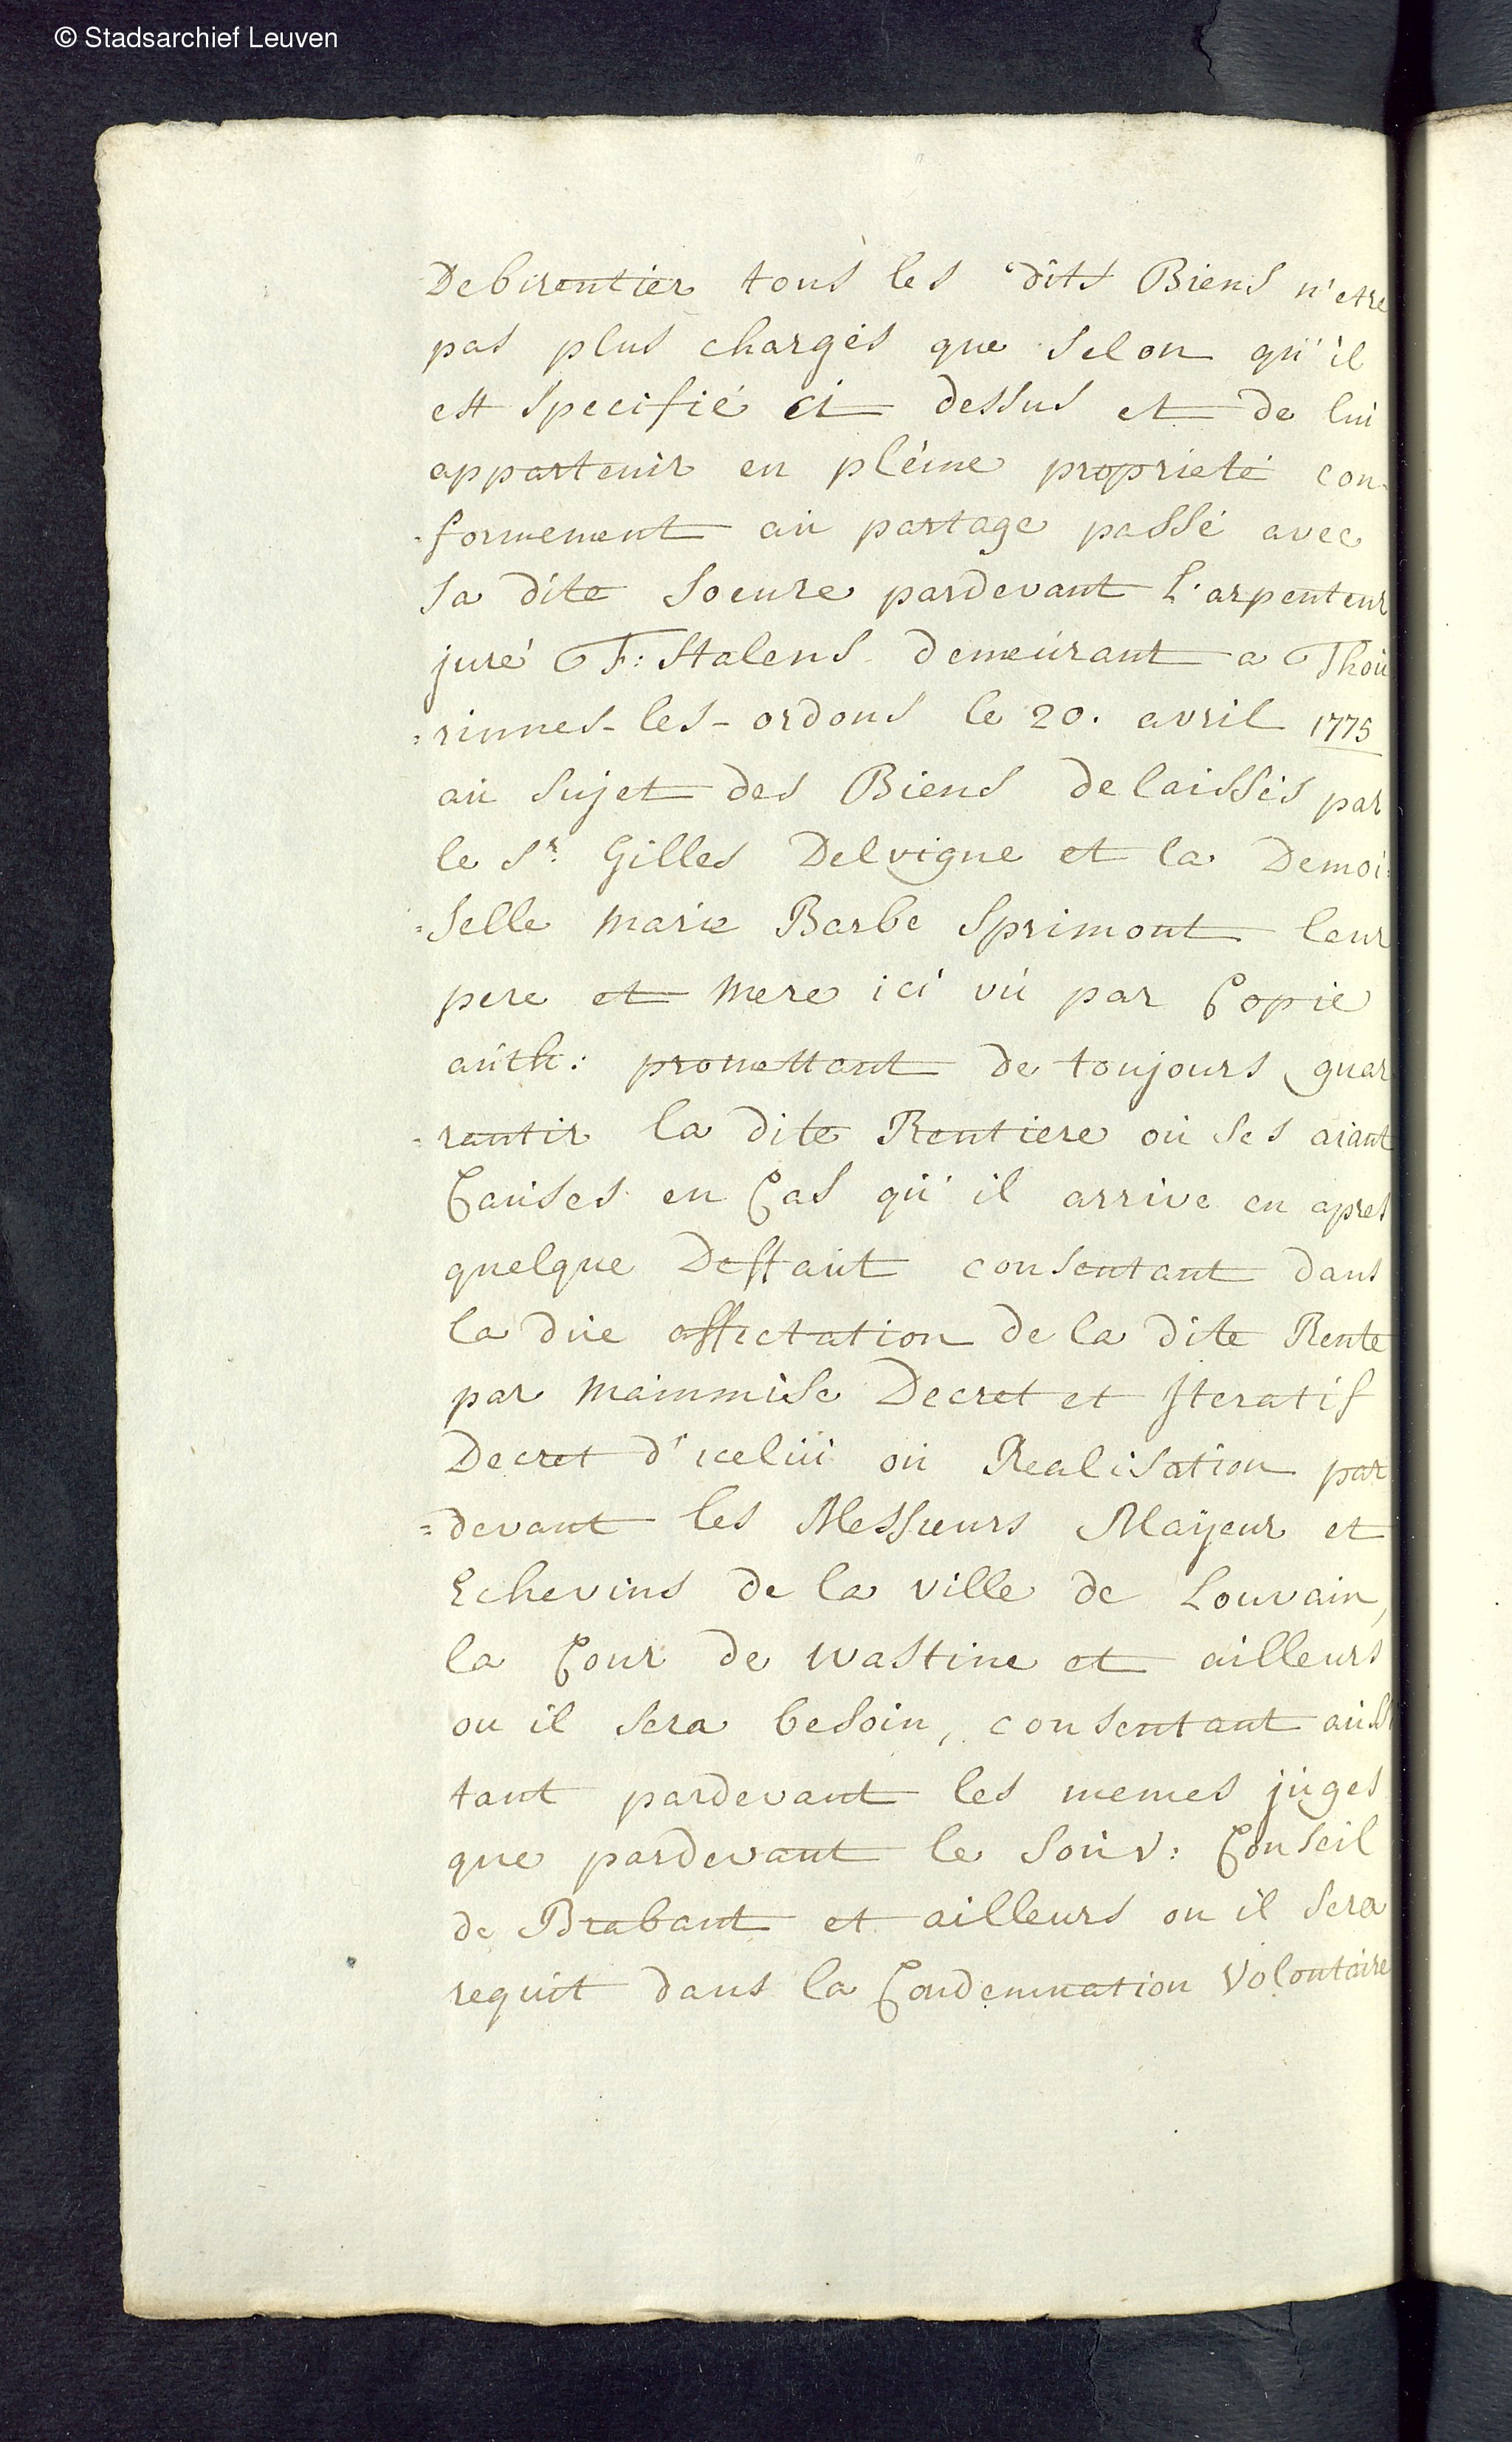 © Stadsarchief Leuven
Debirentier tous les dits Biens n'etre
pas plus chargés que selon qu'il
est specifié ci dessus et de lui
appartenir en pléine proprieté con-
-formement au partage passé avec
sa dite soeure pardevant l'arpenteur
juré F: Stalens demeurant a Thou
=rinnes-les-ordons le 20. avril 1775
au sujet des Biens delaissés par
le Sr. Gilles Delvigne et la Demoi=
=selle Marie Barbe Sprimont leur
pere et Mere ici vú par Copie
auth: promettant de toujours guar
=rantir la dite Rentiere ou ses aiant
Causes en Cas qu'il arrive en apres
quelque Deffaut consentant dans
la due affectation de la dite Rente
par Mainmise Decret et Iteratif
Decret d'icelui ou Realisation par
=devant les Messieurs Maÿeur et
Echevins de la ville de Louvain,
la Cour de Wastine et ailleurs
ou il sera besoin, consentant aussi
tant pardevant les memes juges
que pardevant le Souv: Conseil
de Brabant et ailleurs ou il sera
requit dans la Condemnation Volontaire